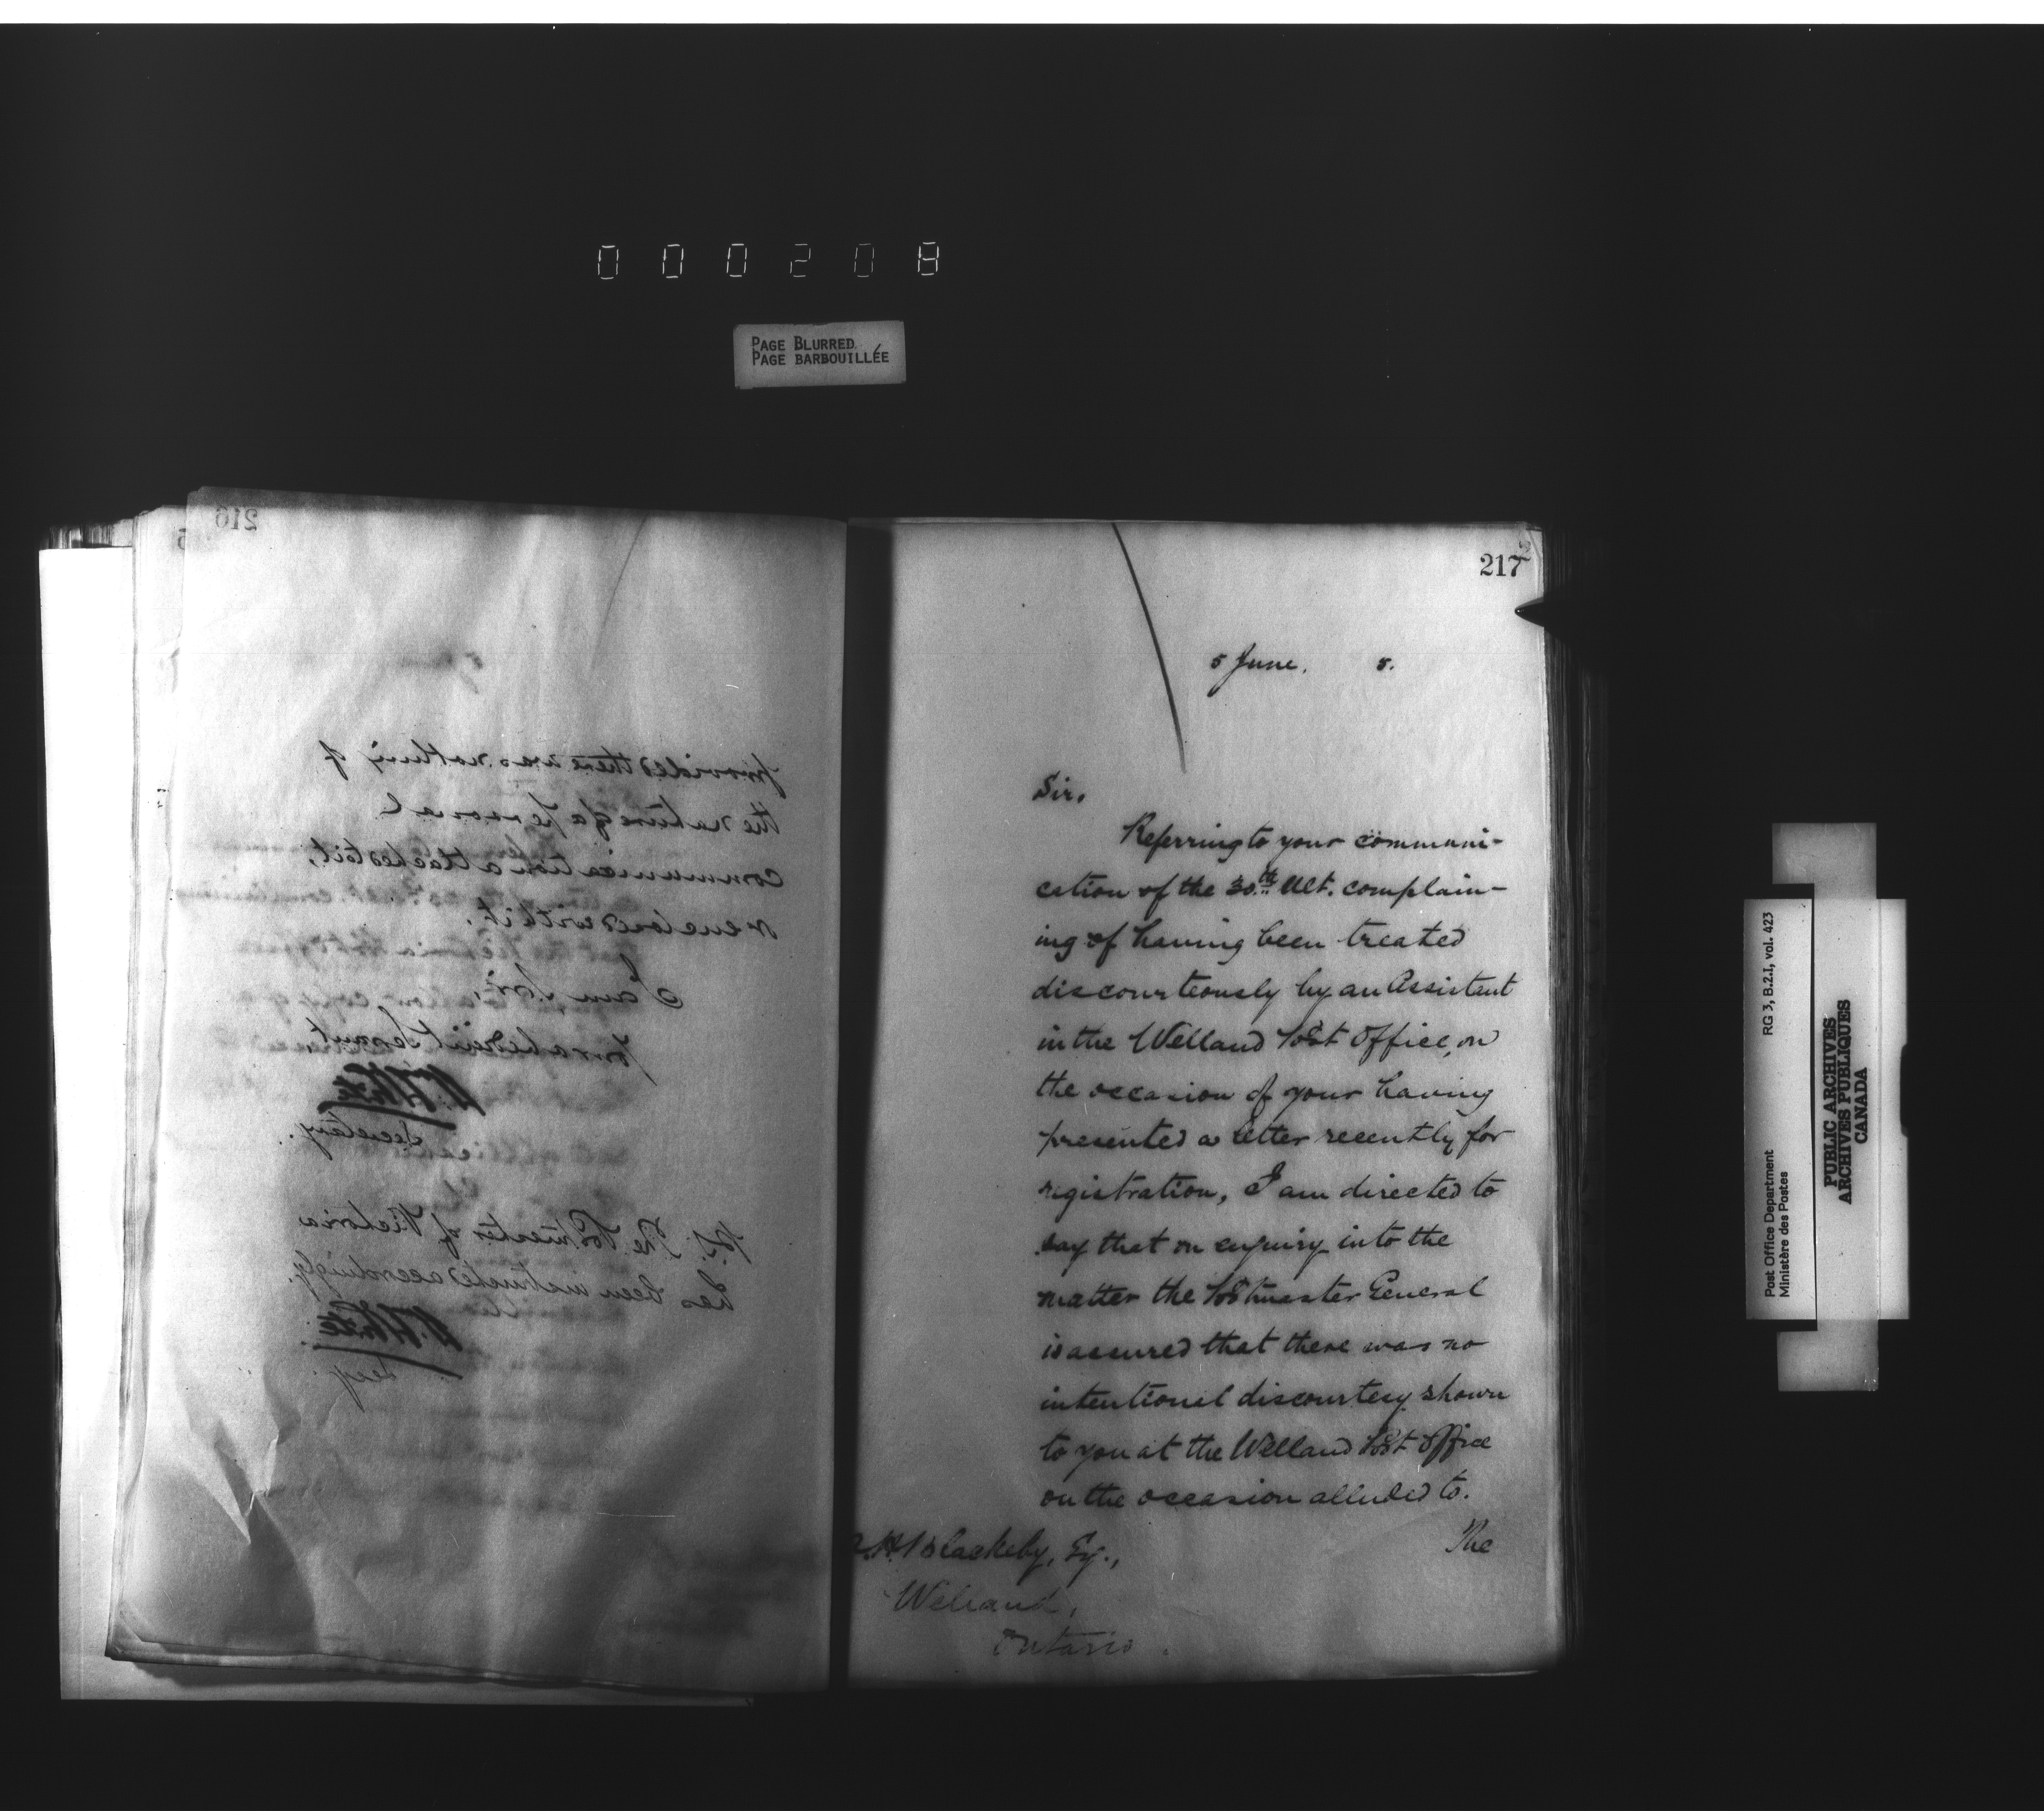 000208
PAGE BLURRED
PAGE BARBOUILLÉE
216
provided there was nothing of
the nature of a personal
communication attached to it,
or enclosed with it.
I am Sir,
Your obedient Servant
W. White
Secretary.
P.S. The Postmaster of Victoria
has been instructed accordingly.
W. White
Secy.
217
5 June. 5.
Sir,
Referring to your communi-
cation of the 30th Ult. complain-
ing of having been treated
discourteously by an Assistant
in the Welland Post Office, on
the occasion of your having
presented a letter recently for
registration, I am directed to
say that on enquiry into the
matter the Postmaster General
is assured that there was no
intentional discourtesy shown
to you at the Welland Post Office
on the occasion alluded to.
The
Blackeby, Esq.,
Welland,
Ontario.
Post Office Department RG 3, B.2.I, vol. 423
Ministère des Postes
PUBLIC ARCHIVES
ARCHIVES PUBLIQUES
CANADA